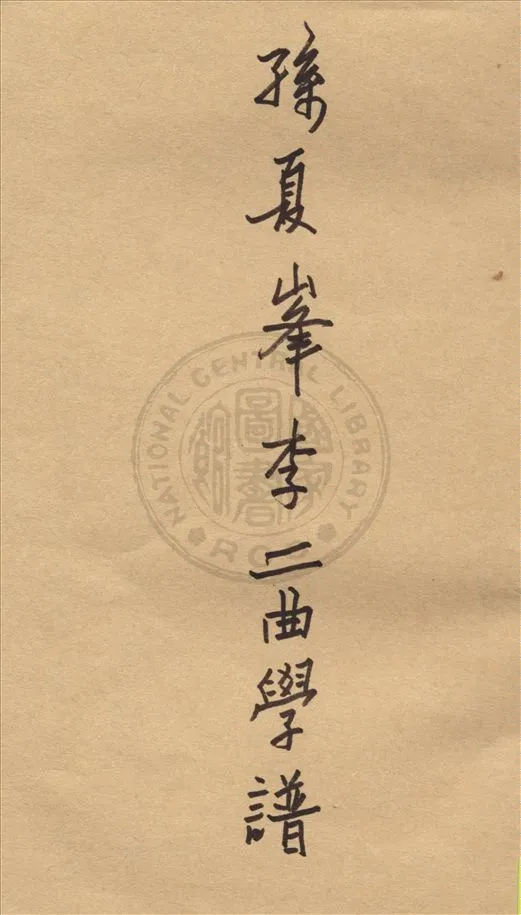 孫夏峯李二曲學譜
NATIONAL CENTRAL LIBRARY
ROC
國家圖書館